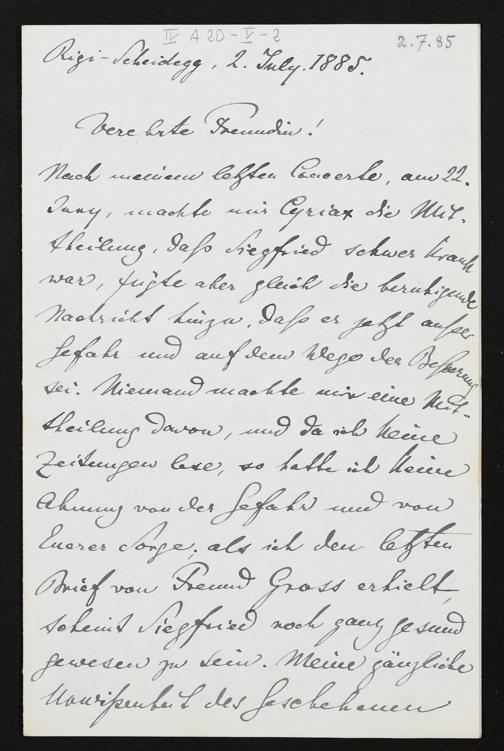 IV A 20-V-2
2.7.85
Rigi-Scheidegg, 2. July. 1885.
Verehrte Freundin!
Nach meinem letzten Concerte, am 22.
Juny, machte mir Cyriax die Mit-
theilung, daß Siegfried schwer krank
war, fügte aber gleich die beruhigende
Nachricht hinzu, daß er jetzt außer
Gefahr und auf dem Wege der Besserung
sei. Niemand machte mir eine Mit-
theilung davon, und da ich keine
Zeitungen lese, so hatte ich keine
Ahnung von der Gefahr und von
Euerer Sorge; als ich den letzten
Brief von Freund Gross erhielt,
scheint Siegfried noch ganz gesund
gewesen zu sein. Meine gänzliche
Unwißenheit des Geschehenen